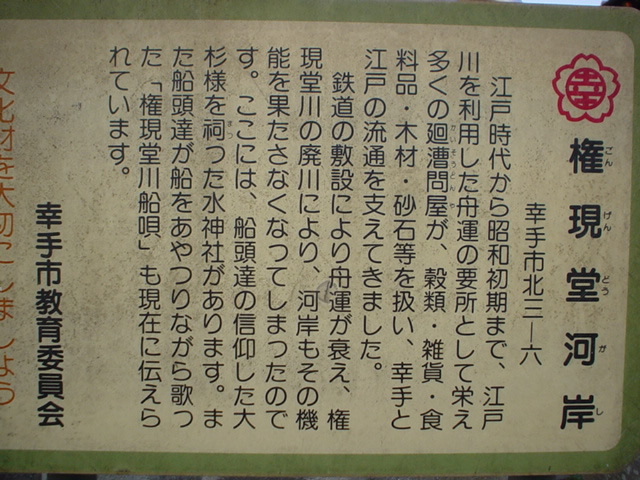 幸
権現堂河岸
ごんげんどうがし
幸手市北三ー六
江戸時代から昭和初期まで、江戸
川を利用した舟運の要所として栄え
多くの廻漕問屋が、穀類・雑貨・食
かいそうどんや
料品・木材・砂石等を扱い、幸手と
江戸の流通を支えてきました。
鉄道の敷設により舟運が衰え、権
現堂川の廃川により、河岸もその機
能を果たさなくなってしまったので
す。ここには、船頭達の信仰した大
杉様を祠った水神社があります。ま
まつ
た船頭達が船をあやつりながら歌っ
た「権現堂川船唄」も現在に伝えら
れています。
幸手市教育委員会
文化財を大切にしましょう